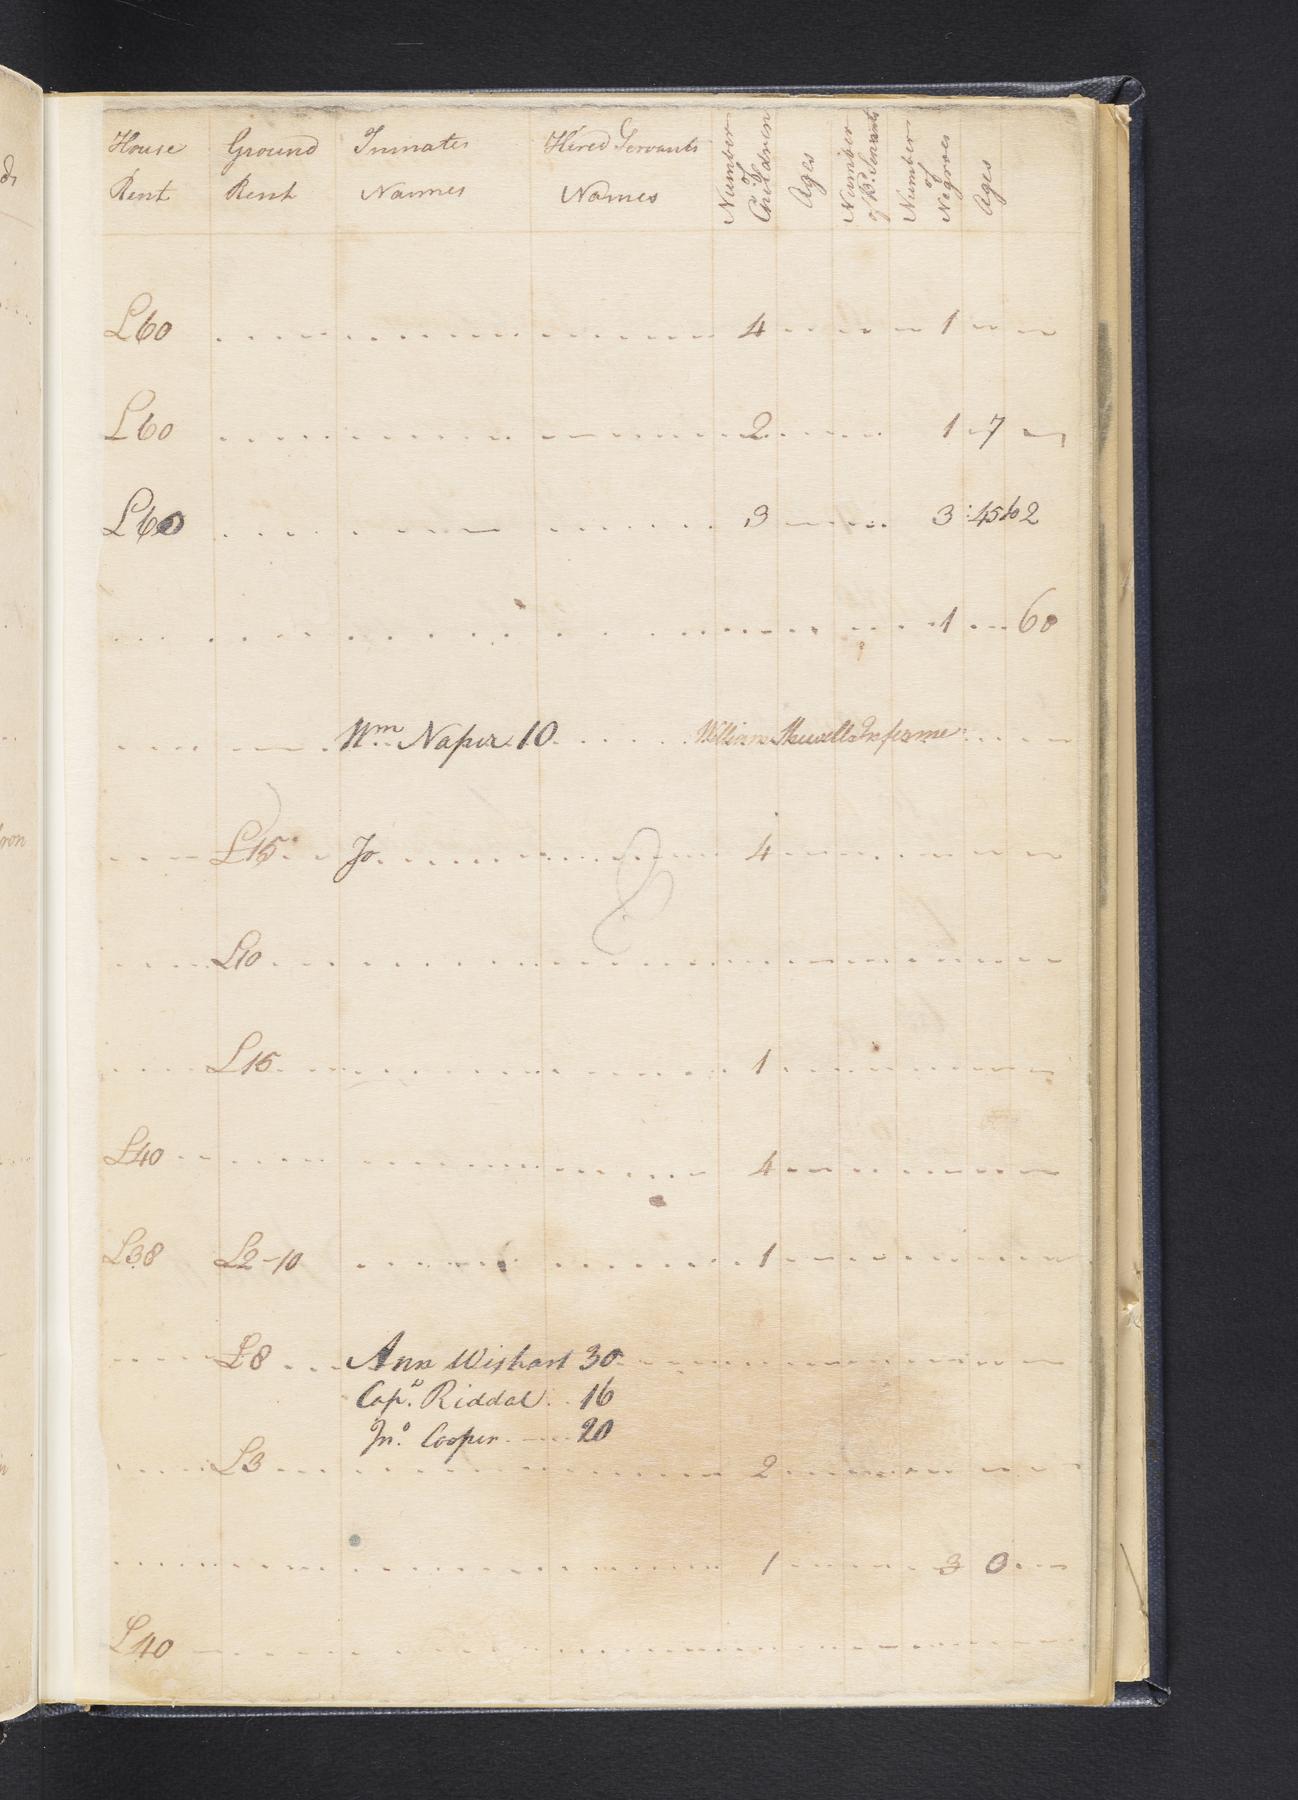 House Rent Ground Rent Inmates Names Hired Servants Names Number of Children Ages Number of B. Servants Number of Negroes Ages
£60 4 1
£60 2 1 7
£60 3 3 45 to 2
1 60
Wm Naper 10 William Infirme
£15 Jo 4
£10
£15 1
£40 4
£38 £2-10 1
£8 Ann Wishart 30
Capt. Riddal 16
Jno. Cooper 20
£3 2
1 3 0
£40